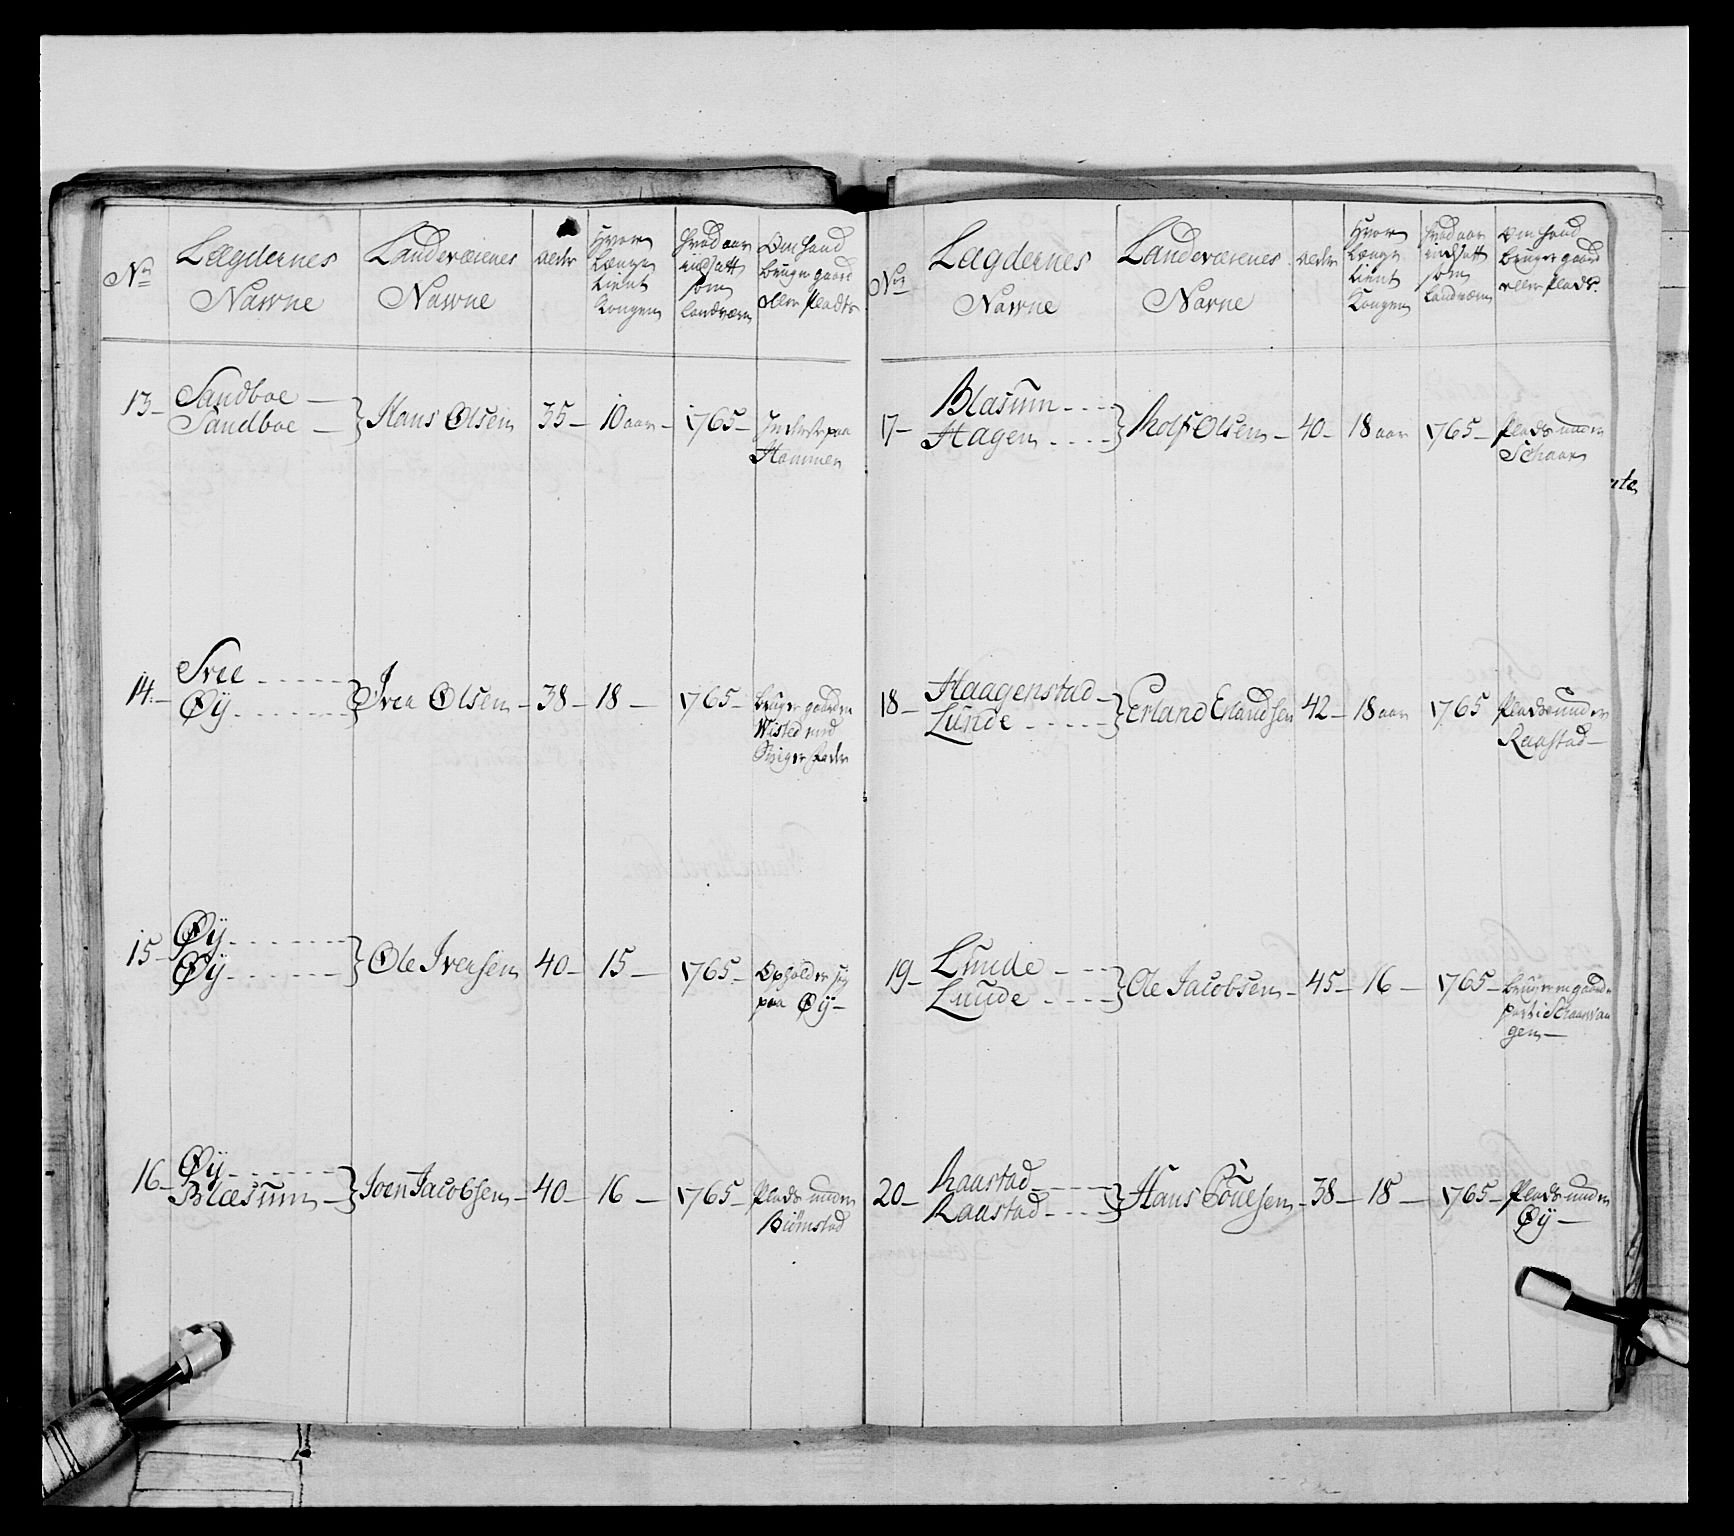 No
Lægdernes
Nawne
Landeværenes
Nawne
alder
Hvor
Længe
tient
Kongen
Hvad aar
indsatt
som
Landværn
Om hand
bruger gaard
eller Plads
13 –
Sandboe –
Sandboe –
Hans Olsen
35 –
10 aar –
1765 –
Inderst paa
Hammer
14. –
Svee
Øÿ
Iver Olsen –
38 –
18 –
1765 –
bruger gaarden
Wisted med
15 –
Øÿ
Øÿ
Ole Iversen
40 –
15 –
1765 –
Opholder sig
paa Øÿ –
16 –
Øÿ
Blæsum –
Joen Jacobsen –
40 –
16 –
1765 –
Plads under
Biørnstad
No
Lægdernes
Nawne
Landeværenes
Navne
alder
Hvor
Længe
tient
Kongen
Hvad aar
indsatt
som
Landværn
Om hand
bruger gaard
eller Plads.
17 –
Blasum
Hagen
Rolf Olsen –
40 –
18 aar
1765 –
Plads under
Schaar
18 –
Haagenstad –
Lunde
Erland Erlandsen
42 –
18 aar
1765
Plads under
Raastad –
19 –
Lunde
Lunde
Ole Jacobsen –
45 –
16 –
1765 –
bruger en gaarde
part i Schaarvan
gen –
20 –
Raastad
Raastad
Hans
38 –
18 –
1765 –
Plads under
Øÿ –